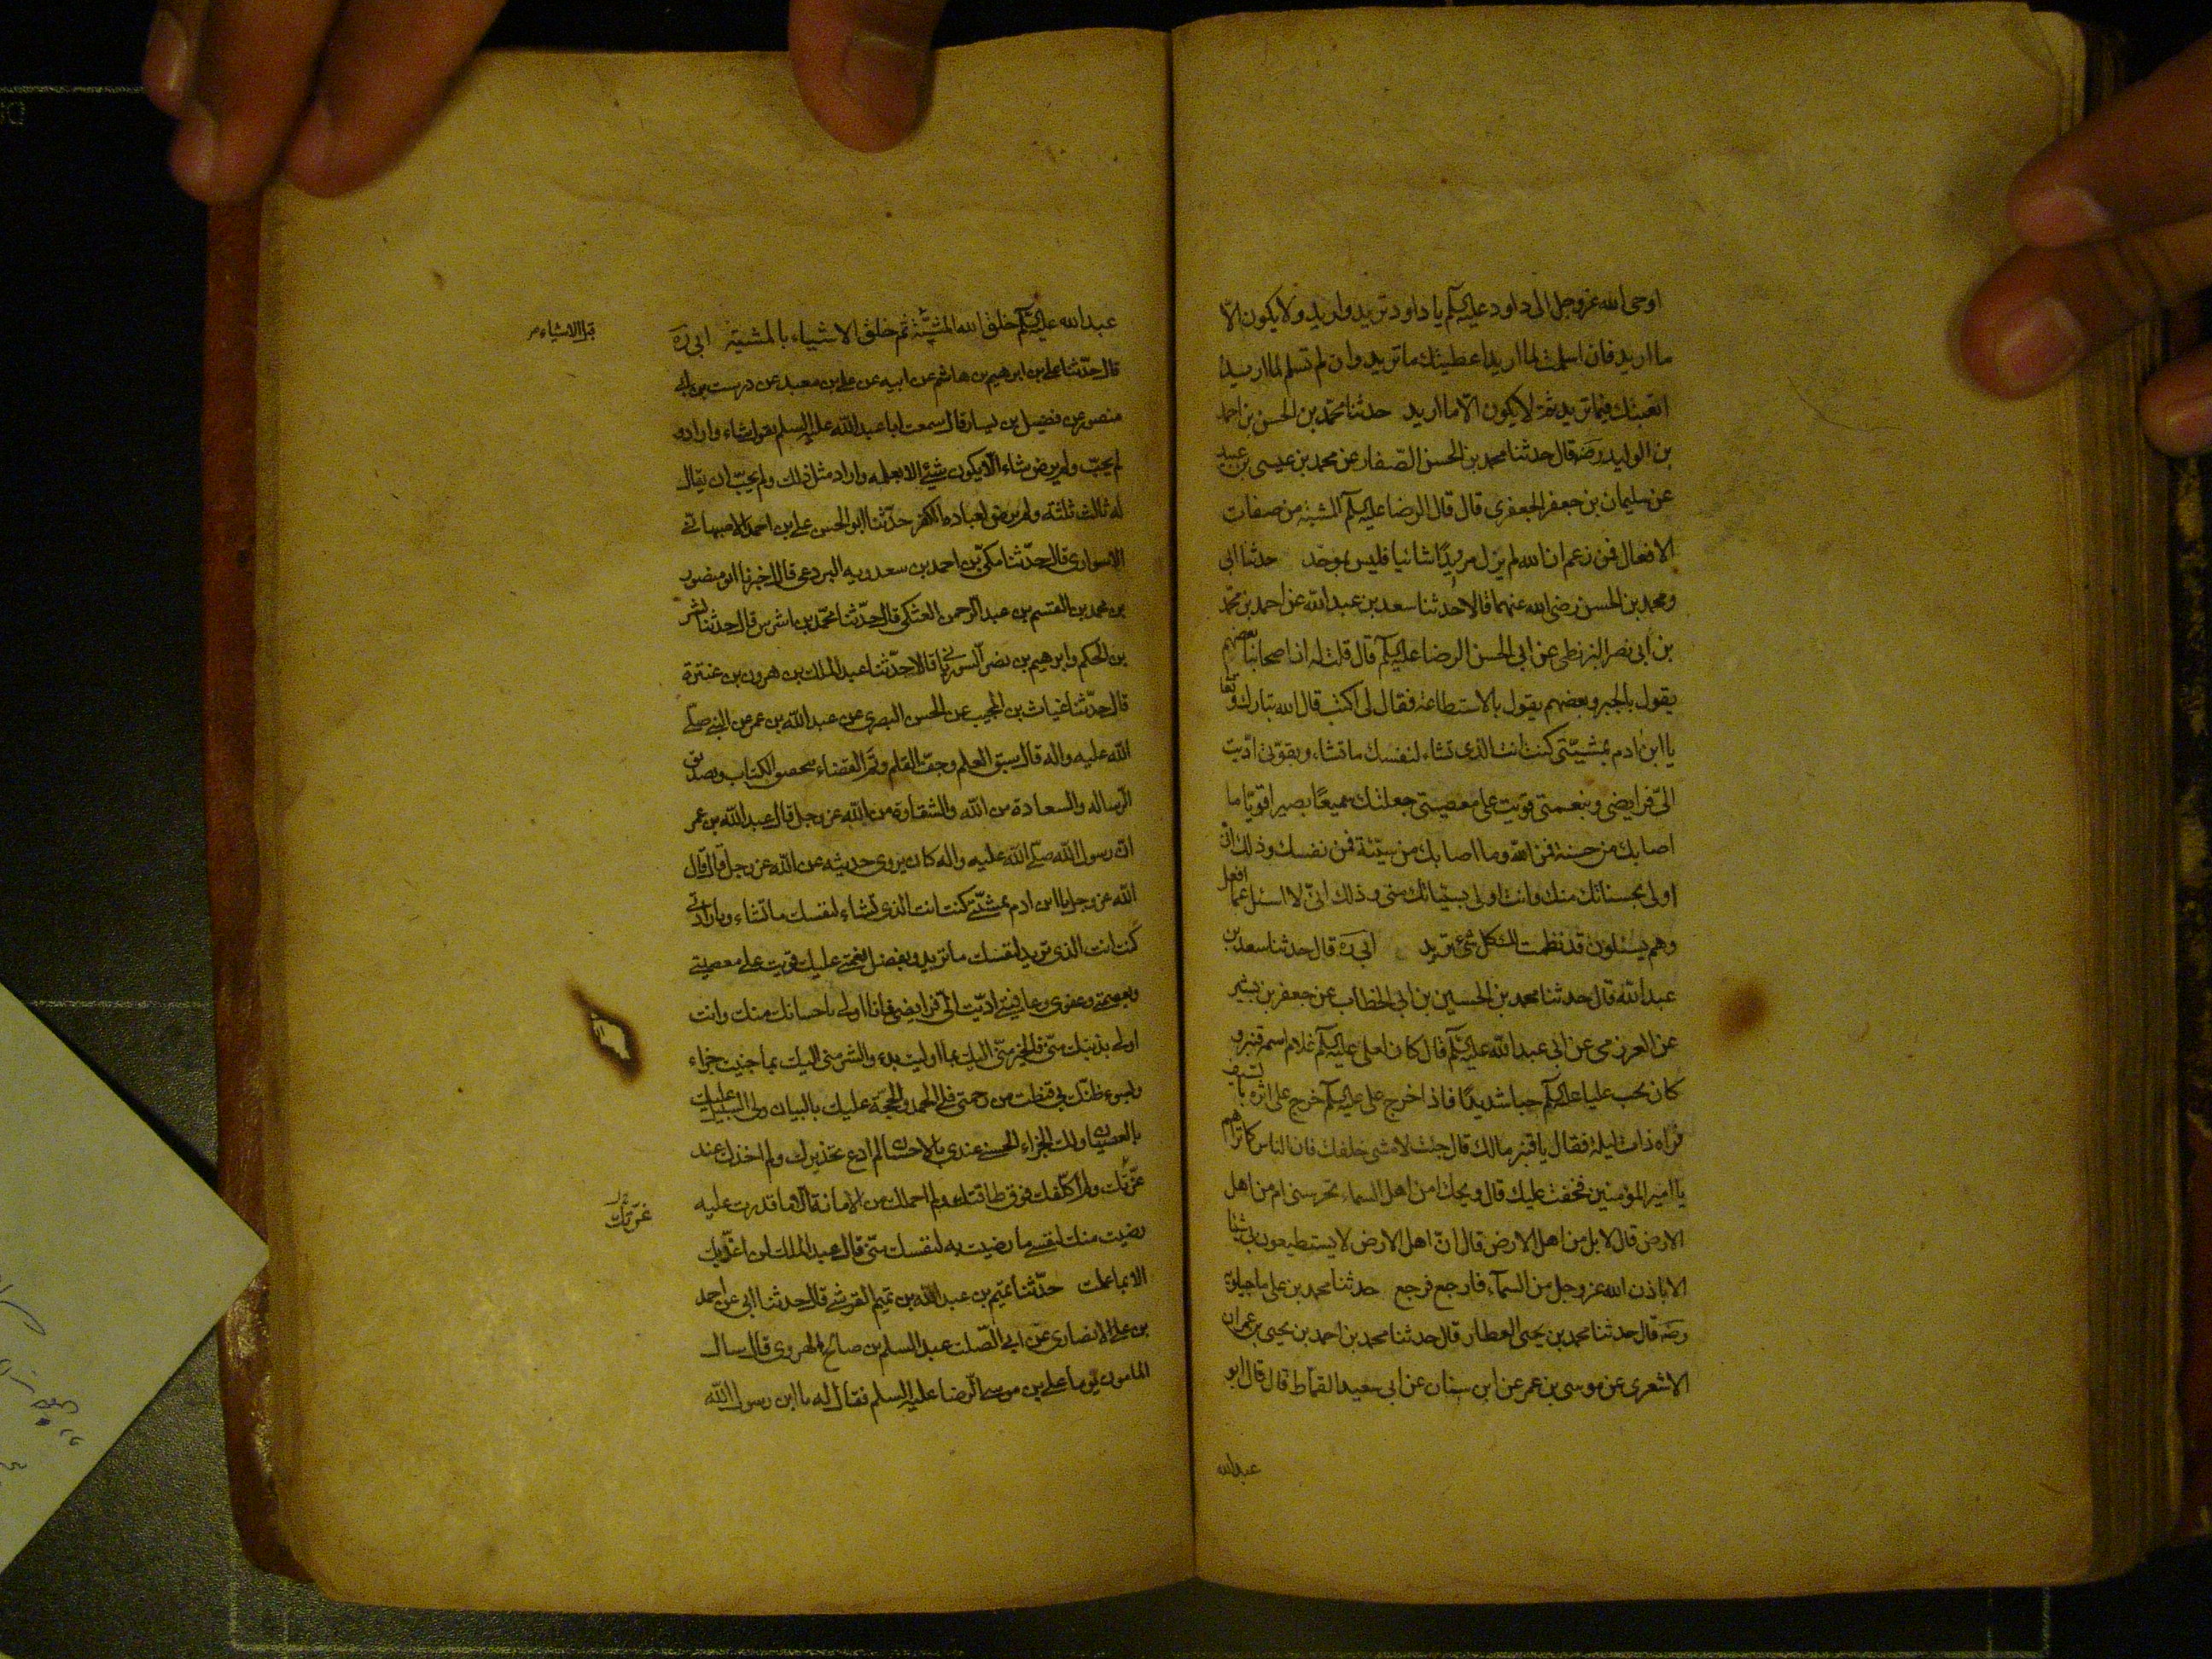 اوحى الله عزوجل الى داود عليه السلم يا داود تريد واريد ولا يكون الّا
ما اريد فان اسلمت لما اريد اعطيتك ما تريد وان لم تسلم لما اريد
اتعبتك فيما تريد ثم لا يكون الّا ما اريد حدثنا محمد بن الحسن بن احمد
بن الوليد رضه قال حدثنا محمد بن الحسن الصّفار عن محمد بن عيسى بن عبيد
عن سليمان بن جعفر الجعفرى قال قال الرضا عليه السلم المشية من صفات
الافعال فمن زعم ان الله لم يزل مريدًا شائيا فليس بموحد حدثنا ابى
ومحمد بن الحسن رضى الله عنهما قالا حدثنا سعد بن عبد الله عن احمد بن محمد
بن ابى نصر البزنطى عن ابى الحسن الرضا عليه السلم قال قلت له ان اصحابنا بعضهم
يقول بالجبر وبعضهم يقول بالاستطاعة فقال لى اكتب قال الله تبارك وتعا
يا ابن ادم بمشيّتى كنت انت الذى تشاء لنفسك ما تشاء وبقوتى ادّيت
الىّ فرايضى وبنعمتى قويت على معصيتى جعلتك سميعًا بصيرا قويّا ما
اصابك من حسنة فمن الله وما اصابك من سيّئة فمن نفسك وذلك انّى
اولى بحسناتك منك وانت اولى بسيّئاتك منى وذلك انّى لا اسئل عما افعل
وهم يسئلون قد نظمت لك كل شئ تريد ابى ره قال حدثنا سعد بن
عبد الله قال حدثنا محمد بن الحسين بن ابى الخطاب عن جعفر بن بشير
عن العرزمى عن ابى عبد الله عليه السلم قال كان لعلى عليه السلم غلام اسمه قنبر و
كان يحب عليا عليه السلم حبا شديدًا فاذا خرج على عليه السلم خرج على اثره بالسيف
فراه ذات ليلة فقال يا قنبر مالك قال جئت لامشى خلفك فان الناس كما تراهم
يا امير المؤمنين فخفت عليك قال ويحك امن اهل السماء تحرسنى ام من اهل
الارض قال لا بل من اهل الارض قال انّ اهل الارض لا يستطيعون بى شيئا
الا باذن الله عزوجل من السمآء فارجع فرجع حدثنا محمد بن على ماجيلويه
رضه قال حدثنا محمد بن يحيى العطار قال حدثنا محمد بن احمد بن يحيى بن عمران
الاشعرى عن موسى بن عمر عن ابن سنان عن ابى سعيد القماط قال قال ابو
عبد الله
عبد الله عليه السلم خلق الله المشيّة ثم خلق الاشياء بالمشية ابى ره
قبل الاشياء
قال حدّثنا على بن ابرهيم بن هاشم عن ابيه عن على بن معبد عن درست بن ابى
منصور عن فضيل بن يسار قال سمعت ابا عبد الله عليه السلم يقول شاء واراد و
لم يحبّ ولم يرض شاء الّا يكون شئ الا بعلمه واراد مثل ذلك ولم يحبّ ان يقال
له ثالث ثلثة ولم يرض لعباده الكفر حدّثنا ابو الحسن على بن احمد الاصبهانى
الاسوارى قال حدّثنا مكّى بن احمد بن سعدويه البردعى قال اخبرنا ابو منصور
بن محمد بن القسم بن عبد الرحمن العتكى قال حدّثنا محمّد بن اشرس قال حدثنا بشر
بن الحكم وابرهيم بن نصر السوريانى قالا حدّثنا عبد الملك بن هرون بن عنترة
قال حدّثنا غياث بن المجيب عن الحسن البصرى عن عبد الله بن عمر عن النبى صلى
الله عليه واله قال سبق العلم وجفّ القلم وتمّ القضاء بتحقيق الكتاب وتصديق
الرّسالة والسعادة من الله والشقاوة من الله عز وجل قال عبد الله بن عمر
انّ رسول الله صلّى الله عليه واله كان يروى حديثه عن الله عز وجل قال قال
الله عز وجل يا ابن ادم بمشيّتى كنت انت الذى تشاء لنفسك ما تشاء وبارادتى
كنت انت الذى تريد لنفسك ما تريد وبفضل نعمتى عليك قويت على معصيتى
وبعصمتى وعفوى وعافيتى ادّيت الىّ فرايضى فانا اولى باحسانك منك وانت
اولى بذنبك منّى فالخير منّى اليك بما اوليت بدء والشر منى اليك بما جنيت جزاء
وبسوء ظنّك بى قنطت من رحمتى فلى الحمد والحجّة عليك بالبيان ولى السبيل عليك
بالعصيان ولك الجزاء الحسنى عندى بالاحسان لم ادع تحذيرك ولم اخذك عند
عزّتك ولم اكلّفك فوق طاقتك ولم احملك من الامانة الّا ما قدرت عليه
غرّتك
رضيت منك لنفسى ما رضيت به لنفسك منّى قال عبد الملك لن اعذّبك
الا بما عملت حدّثنا تميم بن عبد الله بن تميم القرشى قال حدثنا ابى عن احمد
بن على الانصارى عن ابى الصّلت عبد السلم بن صالح الهروى قال سال
المامون يوما على بن موسى الرّضا عليه السلم فقال له يا ابن رسول الله